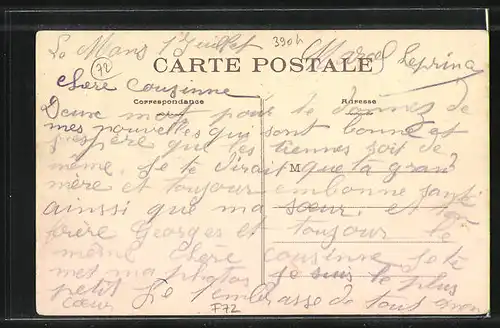 Le Mans 1er Juillet 390h Marcel Leprina
72
CARTE POSTALE
Chère Cousinne
Correspondance Adresse
Deux mot pour te donnez de
mes nouvelles qui sont bonne et
j'espère que les tiennes soit de
même. Je te dirait que ta grand
M
mère et toujour embonne santé
ainsi que ma sœur. et ton
frère Georges et toujour le
même Chère cousinne Je te
met ma photos je suis le plus
petit Je t'embrasse de tout mon
cœur
F72